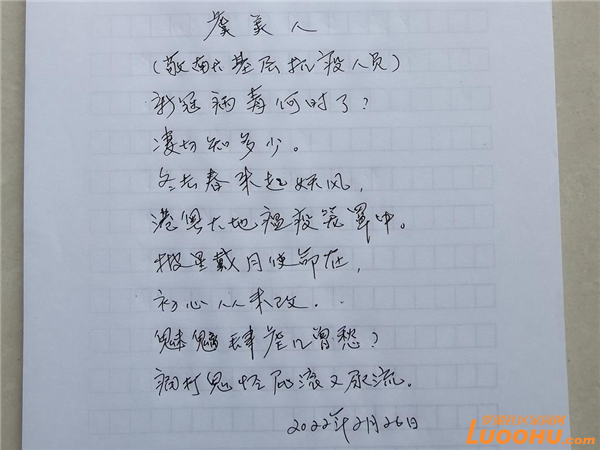 虞美人
(敬献基层抗疫人员)
新冠病毒何时了?
凄切知多少。
冬去春来起妖风,
港粤大地瘟疫笼罩中。
披星戴月使命在,
初心从未改..
魑魅肆虐几曾愁?
病打鬼怪屁滚又尿流。
2022年2月26日
LUOOHU.com